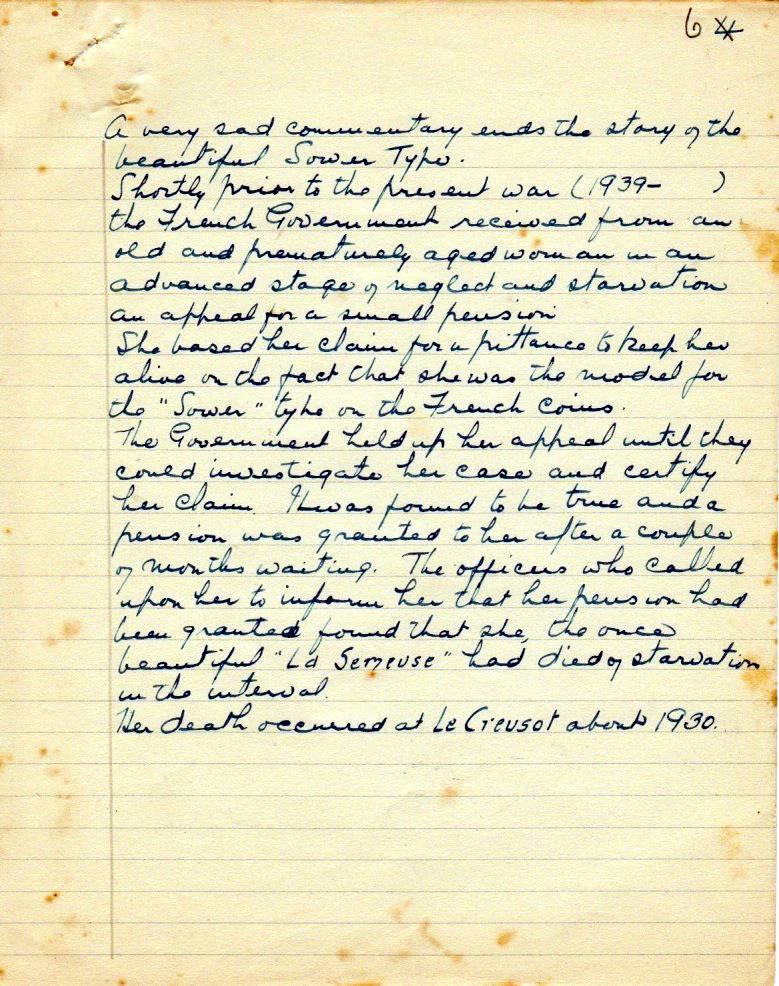 6
A very sad commentary ends the story of the
beautiful Sower Type.
Shortly prior to the present war (1939-      )
the French Government received from an
old and prematurely aged woman in an
advanced stage of neglect and starvation
an appeal for a small pension
She based her claim for a pittance to keep her
alive on the fact that she was the model for
the "Sower" type on the French Coins.
The Government held up her appeal until they
could investigate her case and certify
her claim. It was found to be true and a
pension was granted to her after a couple
of months waiting. The officers who called
upon her to inform her that her pension had
been granted found that she, the once
beautiful "La Semeuse" had died of starvation
in the interval.
Her death occurred at Le Creusot about 1930.